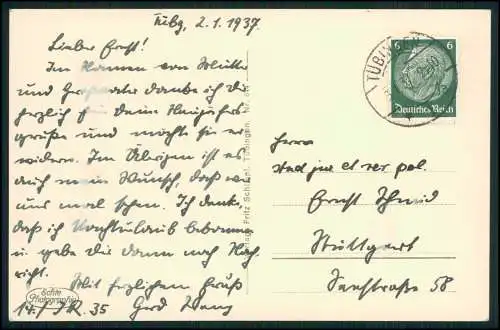 Tübg, 2.1.1937.
Lieber Ernst!
Im Namen von Mutter
und Großvater danke ich dir
herzlich für deine Neujahrs-
grüße und möchte sie er-
widern. Im Übrigen ist es
auch mein Wunsch, daß wir
uns mal sehen. Ich denke,
daß ich Nachturlaub bekomme
u. gebe dir dann noch Nach-
richt.
Mit herzlichem Gruß
14./I.R. 35 Gerd
Echte Photographie
Verlag Fritz Schimpf, Tübingen.
TÜBINGEN
6 6
Deutsches Reich
Herrn
stud jur et rer pol.
Ernst Schmid
Stuttgart
Seestraße 58